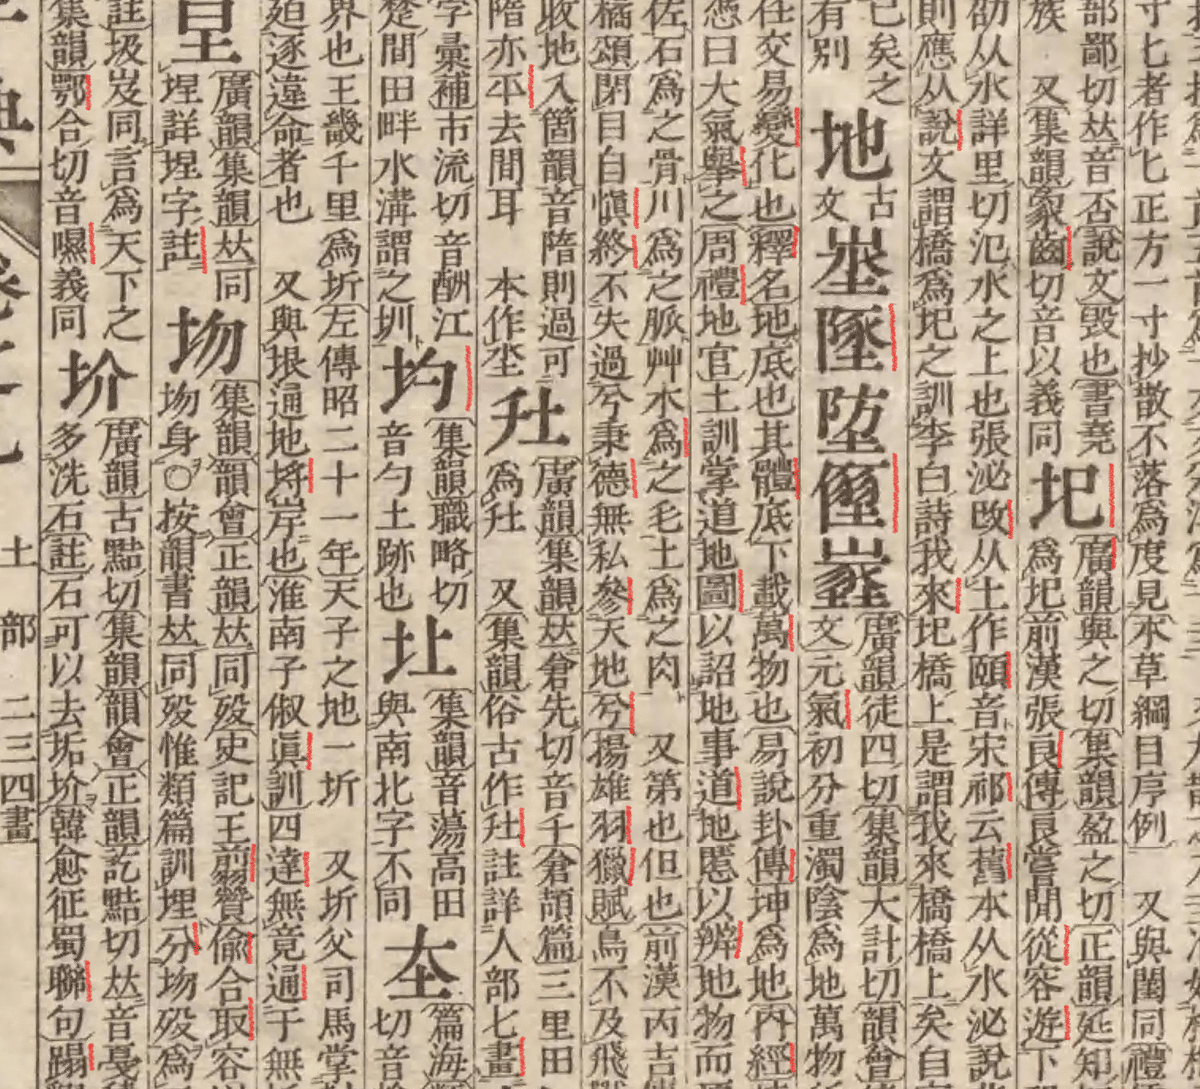 寸七者作匕正方一寸抄散不落為度見本草綱目序例 又與閨同禮
部鄙切𠀤音否說文毀也書堯
族 又集韻象齒切音以義同
圯
廣韻與之切集韻盈之切正韻延知
為圯前漢張良傳良嘗閒從容遊下
从水詳里切汜水之上也張泌改从土作頤音宋祁云舊本从水泌說
則應从說文謂橋為圯之訓李白詩我來圯橋上是謂我來橋橋上矣自
已矣之
有別
地
古文
埊墬埅
廣韻徒四切集韻大計切韻會
文元氣初分重濁陰為地萬物
任交易變化也釋名地底也其體底下載萬物也易說卦傳坤為地內經
憑曰大氣舉之周禮地官土訓掌道地圖以詔地事道地慝以辨地物而
佐石為之骨川為之脈艸木為之毛土為之肉 又第也但也前漢丙吉
橘頌閉目自愼終不失過兮秉德無私參天地兮揚雄羽獵賦鳥不及飛
收地入箇韻音隋則過可
隋亦平去間耳 本作坔
圱
廣韻集韻𠀤倉先切音千倉頡篇三里田
為圱 又集韻俗古作圱註詳人部七畫
字彙補市流切音酬江
楚間田畔水溝謂之圳
圴
集韻職略切
音勺土跡也
圵
集韻音蕩高田
與南北字不同
篇海
切音
界也王畿千里為圻左傳昭二十一年天子之地一圻 又圻父司馬掌
廹逐違命者也 又與垠通地垺岸也淮南子俶眞訓四達無竟通于無
圼
廣韻集韻𠀤同
埕詳埕字註
圽
集韻韻會正韻𠀤同歿史記王翦贊偷合取容
圽身○按韻書𠀤同歿惟類篇訓埋分圽歿為
註圾岌同言為天下之
集韻鄂合切音㬤義同
圿
廣韻古黠切集韻韻會正韻訖黠切𠀤音戛
多洗石註石可以去垢圿韓愈征蜀聯句蹋
典
土部 二三四畫